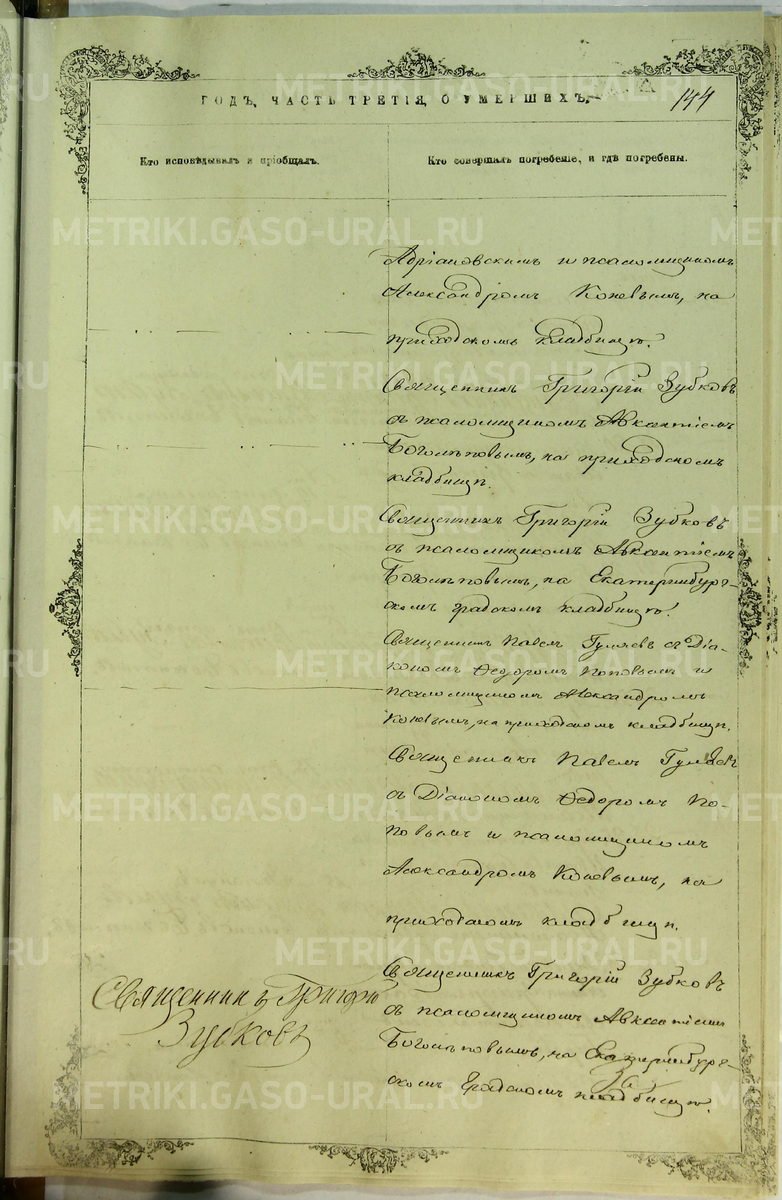 ГОДЪ, ЧАСТЬ ТРЕТІЯ, О УМЕРШИХЪ.
144
Кто исповѣдывалъ и пріобщалъ.
Кто совершалъ погребеніе, и гдѣ погребены.
METRIKI.GASO-URAL.RU
Адріановскимъ и псаломщикомъ
Александромъ Коневымъ, на
приходскомъ кладбищѣ.
Священникъ Григорій Зубковъ
съ псаломщикомъ Авксентіемъ
Боголѣповымъ, на приходскомъ
кладбищѣ.
Священникъ Григорій Зубковъ
съ псаломщикомъ Авксентіемъ
Боголѣповымъ, на Екатеринбург-
скомъ градскомъ кладбищѣ.
Священникъ Павелъ Гуляевъ съ Діа-
кономъ Ѳедоромъ Поповымъ и
псаломщикомъ Александромъ
Коневымъ, на приходскомъ кладбищѣ.
Священникъ Павелъ Гуляевъ
съ Діакономъ Ѳедоромъ По-
повымъ и псаломщикомъ
Александромъ Коневымъ, на
приходскомъ кладбищѣ.
Священникъ Григорій Зубковъ
съ псаломщикомъ Авксентіемъ
Боголѣповымъ, на Екатеринбург-
скомъ градскомъ кладбищѣ.
Священникъ Григорій
Зубковъ